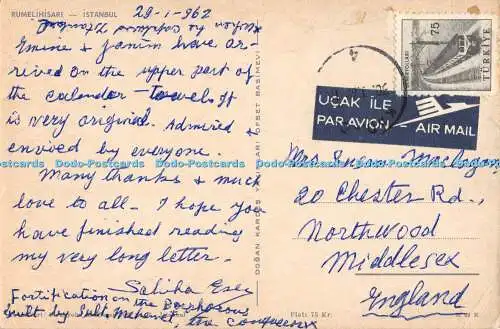 RUMELİHİSARI — İSTANBUL
29-1-962
Emine & Janım have ar-
rived on the upper part of
the calendar-towel. It
is very original. Admired &
envied by everyone.
Many thanks & much
love to all. I hope you
have finished reading
my very long letter.
Saliha
Fortification on the Bosphorous
built by Sult. Mehmet, the conqueror
DOĞAN KARDEŞ OFSET BASIMEVİ
75
TÜRKİYE
UÇAK İLE
PAR AVION
AIR MAIL
Mrs
20 Chester Rd.,
Northwood
Middlesex
England
Fiatı 75 Kr.
Dodo-Postcards Dodo-Postcards Dodo-Postcards Dodo-Postcards Dodo-Postcards